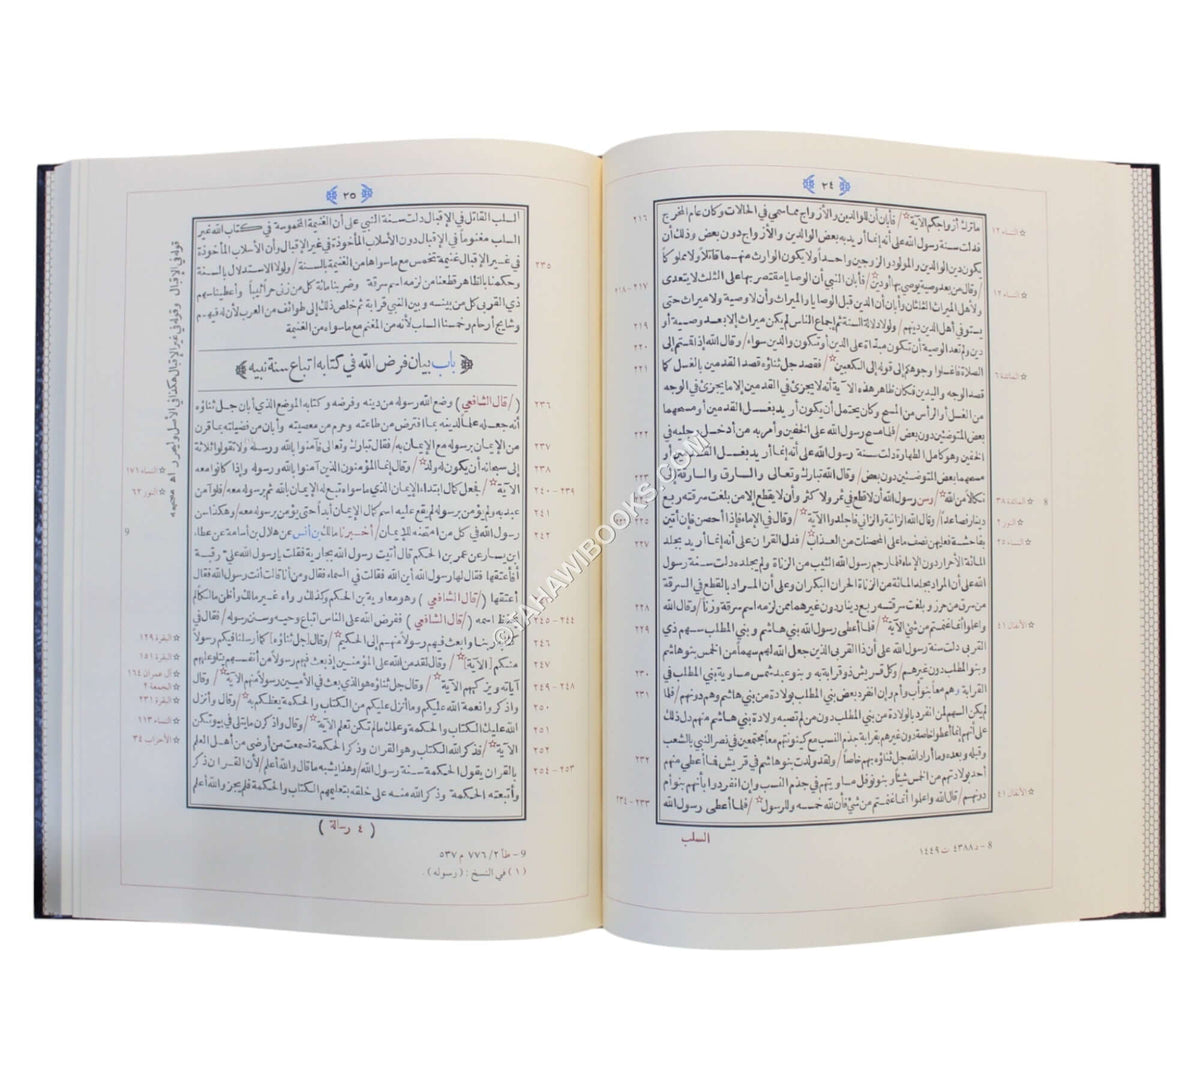 ٢٤
ما ترك أزواجكم الآية / فأبان أن للوالدين والأزواج مما سمى في الحالات وكان عام المخرج
فدلت سنة رسول الله على أنه إنما أريد به بعض الوالدين والأزواج دون بعض وذلك أن
يكون دين الوالدين والمولود والزوجين واحدا ولا يكون الوارث منهما قاتلا ولا مملوكا
/ وقال من بعد وصية يوصي بها أو دين / فأبان النبي أن الوصايا مقتصر بها على الثلث لا يتعدى
ولأهل الميراث الثلثان وأبان أن الدين قبل الوصايا والميراث وأن لا وصية ولا ميراث حتى
يستوفي أهل الدين دينهم / ولولا دلالة السنة ثم إجماع الناس لم يكن ميراث إلا بعد وصية أو
دين ولم تعد الوصية أن تكون مبداة على الدين أو تكون والدين سواء / وقال الله إذا قمتم إلى
الصلاة فاغسلوا وجوهكم إلى قوله إلى الكعبين / فقصد جل ثناؤه قصد القدمين بالغسل كما
قصد الوجه واليدين فكان ظاهر هذه الآية أنه لا يجزئ في القدمين إلا ما يجزئ في الوجه
من الغسل أو الرأس من المسح وكان يحتمل أن يكون أريد بغسل القدمين أو مسحهما
بعض المتوضئين دون بعض / فلما مسح رسول الله على الخفين وأمر به من أدخل رجليه في
الخفين وهو كامل الطهارة دلت سنة رسول الله على أنه إنما أريد بغسل القدمين أو
مسحهما بعض المتوضئين دون بعض / وقال الله تبارك وتعالى والسارق والسارقة إلى
نكالا من الله / وسن رسول الله أن لا قطع في ثمر ولا كثر وأن لا يقطع إلا من بلغت سرقته ربع
دينار فصاعدا / وقال الله الزانية والزاني فاجلدوا الآية / وقال في الإماء فإذا أحصن فإن أتين
بفاحشة فعليهن نصف ما على المحصنات من العذاب / فدل القرآن على أنه إنما أريد بجلد
المائة الأحرار دون الإماء فلما رجم رسول الله الثيب من الزناة ولم يجلده دلت سنة رسول
الله على أن المراد بجلد المائة من الزناة الحران البكران وعلى أن المراد بالقطع في السرقة
من سرق من حرز وبلغت سرقته ربع دينار دون غيرهما ممن لزمه اسم سرقة وزنا / وقال الله
واعلموا أنما غنمتم من شيء الآية / فلما أعطى رسول الله بني هاشم وبني المطلب سهم ذي
القربى دلت سنة رسول الله على أن ذا القربى الذين جعل الله لهم سهما من الخمس بنو هاشم
وبنو المطلب دون غيرهم / وكل قريش ذو قرابة به وبنو عبد شمس مساوية بني المطلب في
القرابة وهم معا بنو أب وأم وإن انفرد بعض بني المطلب بولادة من بني هاشم دونهم / فلما
لم يكن السهم لمن انفرد بالولادة من بني المطلب دون من لم تصبه ولادة بني هاشم منهم دل ذلك
على أنهم إنما أعطوا خاصة دون غيرهم بقرابة جذم النسب مع كينونتهم معا مجتمعين في نصر النبي بالشعب
وقبله وبعده وما أراد الله جل ثناؤه بهم خاصا / ولقد ولدت بنو هاشم في قريش فما أعطي منهم
أحد بولادتهم من الخمس شيئا وبنو نوفل مساويتهم في جذم النسب وإن انفردوا بأنهم بنو أم
دونهم / قال الله واعلموا أنما غنمتم من شيء فأن لله خمسه وللرسول / فلما أعطى رسول الله
السلب
8 – د ٤٣٨٨ ت ١٤٤٩
النساء ١٢
النساء ١٢
المائدة ٦
المائدة ٣٨
النور ٢
النساء ٢٥
الأنفال ٤١
الأنفال ٤١
8
٢١٦
٢١٧ – ٢١٨
٢١٩
٢٢٠
٢٢١
٢٢٢
٢٢٧
٢٢٨
٢٢٩
٢٣٠
٢٣١
٢٣٢
٢٣٣ – ٢٣٤
٢٥
السلب القاتل في الإقبال دلت سنة النبي على أن الغنيمة المخموسة في كتاب الله غير
السلب مغنوما في الإقبال دون الأسلاب المأخوذة في غير الإقبال وأن الأسلاب المأخوذة
في غير الإقبال غنيمة تخمس مع ما سواها من الغنيمة بالسنة / ولولا الاستدلال بالسنة
وحكمنا بالظاهر قطعنا من لزمه اسم سرقة وضربنا مائة كل من زنى حرا ثيبا وأعطينا سهم
ذي القربى كل من بينه وبين النبي قرابة ثم خلص ذلك إلى طوائف من العرب لأن له فيهم
وشايج أرحام وخمسنا السلب لأنه من المغنم مع ما سواه من الغنيمة
باب بيان فرض الله في كتابه اتباع سنة نبيه
( / قال الشافعي ) وضع الله رسوله من دينه وفرضه وكتابه الموضع الذي أبان جل ثناؤه
أنه جعله علما لدينه بما افترض من طاعته وحرم من معصيته وأبان من فضيلته بما قرن
من الإيمان برسوله مع الإيمان به / فقال تبارك وتعالى فآمنوا بالله ورسله ولا تقولوا ثلاثة
إلى سبحانه أن يكون له ولد / وقال إنما المؤمنون الذين آمنوا بالله ورسوله وإذا كانوا معه
الآية / فجعل كمال ابتداء الإيمان الذي ما سواه تبع له الإيمان بالله ثم برسوله معه / فلو آمن
عبد به ولم يؤمن برسوله لم يقع عليه اسم كمال الإيمان أبدا حتى يؤمن برسوله معه / وهكذا سن
رسول الله في كل من امتحنه للإيمان / أخبرنا مالك بن أنس عن هلال بن أسامة عن عطاء
ابن يسار عن عمر بن الحكم قال أتيت رسول الله بجارية فقلت يا رسول الله علي رقبة
أفأعتقها فقال لها رسول الله أين الله فقالت في السماء فقال ومن أنا قالت أنت رسول الله فقال
أعتقها ( / قال الشافعي ) وهو معاوية بن الحكم وكذلك رواه غير مالك وأظن مالكا لم
يحفظ اسمه ( / قال الشافعي ) ففرض الله على الناس اتباع وحيه وسنن رسوله / فقال في
كتابه ربنا وابعث فيهم رسولا منهم إلى الحكيم / وقال جل ثناؤه كما أرسلنا فيكم رسولا
منكم [الآية] / وقال لقد من الله على المؤمنين إذ بعث فيهم رسولا من أنفسهم يتلو عليهم
آياته ويزكيهم الآية / وقال جل ثناؤه هو الذي بعث في الأميين رسولا منهم الآية / وقال
واذكروا نعمة الله عليكم وما أنزل عليكم من الكتاب والحكمة يعظكم به / وقال وأنزل
الله عليك الكتاب والحكمة وعلمك ما لم تكن تعلم الآية / وقال واذكرن ما يتلى في بيوتكن
الآية / فذكر الله الكتاب وهو القرآن وذكر الحكمة فسمعت من أرضى من أهل العلم
بالقرآن يقول الحكمة سنة رسول الله / وهذا يشبه ما قال والله أعلم / لأن القرآن ذكر
وأتبعته الحكمة وذكر الله منه على خلقه بتعليمهم الكتاب والحكمة فلم يجز والله أعلم
( ٤ رسالة )
9 – طأ ٢/٧٧٦ م ٥٣٧
(١) في النسخ : (رسوله) .
قوله في الإقبال وقوله في غير الإقبال هكذا في الأصل وليحرر اه مصححه
٢٣٥
٢٣٦
٢٣٧
٢٣٨
٢٣٩ – ٢٤٠
٢٤١
٢٤٢
٢٤٤ – ٢٤٥
٢٤٧
٢٤٨ – ٢٤٩
٢٥٠
٢٥١
٢٥٢
٢٥٣ – ٢٥٤
النساء ١٧١
النور ٦٢
9
البقرة ١٢٩
البقرة ١٥١
آل عمران ١٦٤
الجمعة ٢
البقرة ٢٣١
النساء ١١٣
الأحزاب ٣٤
©TAHAWIBOOKS.COM